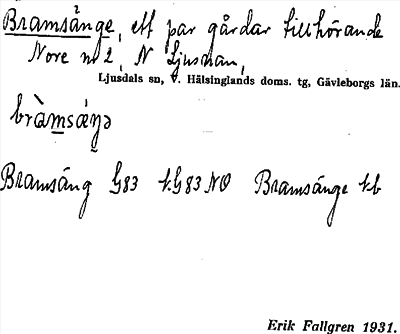 Bramsänge, ett par gårdar tillhörande
Nore nr 2, N Ljusnan,
Ljusdals sn, V. Hälsinglands doms. tg, Gävleborgs län.
bràmsä́ŋə
Bramsäng G83 k.G83 NO Bramsänge kb
Erik Fallgren 1931.